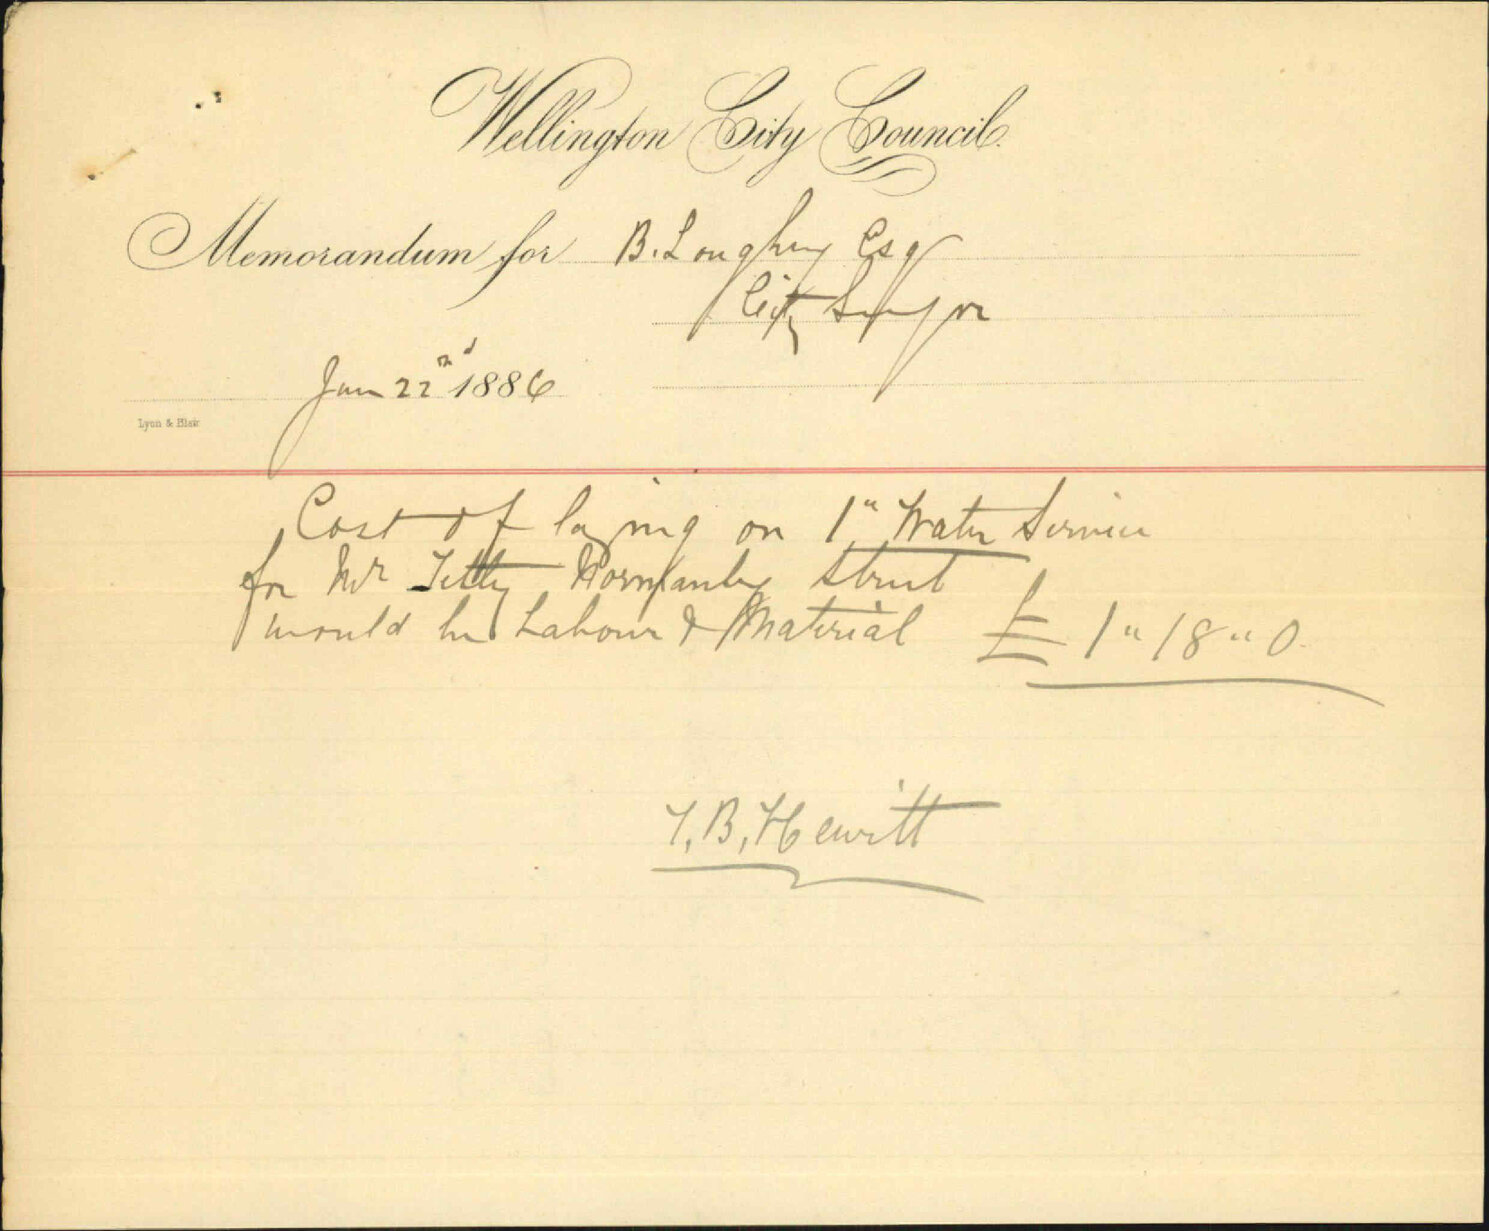 Wellington City Council.
Memorandum for B. Loughrey Esq
City Surveyor
Jan 22nd 1886
Lyon & Blair
Cost of laying on 1" Water Service
for Mr Tetty Normanby Street
would be Labour & Material £ 1 " 18 " 0.
T. B. Hewitt